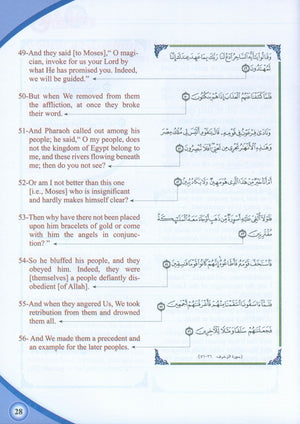 49-And they said [to Moses],“ O magi-
cian, invoke for us your Lord by
what He has promised you. Indeed,
we will be guided.”
وَقَالُوا يَا أَيُّهَ السَّاحِرُ ادْعُ لَنَا رَبَّكَ بِمَا عَهِدَ عِندَكَ إِنَّنَا
لَمُهْتَدُونَ ٤٩
50-But when We removed from them
the affliction, at once they broke
their word.
فَلَمَّا كَشَفْنَا عَنْهُمُ الْعَذَابَ إِذَا هُمْ يَنكُثُونَ ٥٠
51-And Pharaoh called out among his
people; he said,“ O my people, does
not the kingdom of Egypt belong to
me, and these rivers flowing beneath
me; then do you not see?
وَنَادَىٰ فِرْعَوْنُ فِي قَوْمِهِ قَالَ يَا قَوْمِ أَلَيْسَ لِي مُلْكُ مِصْرَ
وَهَٰذِهِ الْأَنْهَارُ تَجْرِي مِن تَحْتِي أَفَلَا تُبْصِرُونَ ٥١
52-Or am I not better than this one
[i.e., Moses] who is insignificant
and hardly makes himself clear?
أَمْ أَنَا خَيْرٌ مِّنْ هَٰذَا الَّذِي هُوَ مَهِينٌ وَلَا يَكَادُ يُبِينُ ٥٢
53-Then why have there not been placed
upon him bracelets of gold or come
with him the angels in conjunc-
tion? ”
فَلَوْلَا أُلْقِيَ عَلَيْهِ أَسْوِرَةٌ مِّن ذَهَبٍ أَوْ جَاءَ مَعَهُ الْمَلَائِكَةُ
مُقْتَرِنِينَ ٥٣
54-So he bluffed his people, and they
obeyed him. Indeed, they were
[themselves] a people defiantly dis-
obedient [of Allah].
فَاسْتَخَفَّ قَوْمَهُ فَأَطَاعُوهُ إِنَّهُمْ كَانُوا قَوْمًا فَاسِقِينَ ٥٤
55-And when they angered Us, We took
retribution from them and drowned
them all.
فَلَمَّا آسَفُونَا انتَقَمْنَا مِنْهُمْ فَأَغْرَقْنَاهُمْ أَجْمَعِينَ ٥٥
56- And We made them a precedent and
an example for the later peoples.
فَجَعَلْنَاهُمْ سَلَفًا وَمَثَلًا لِّلْآخِرِينَ ٥٦
28